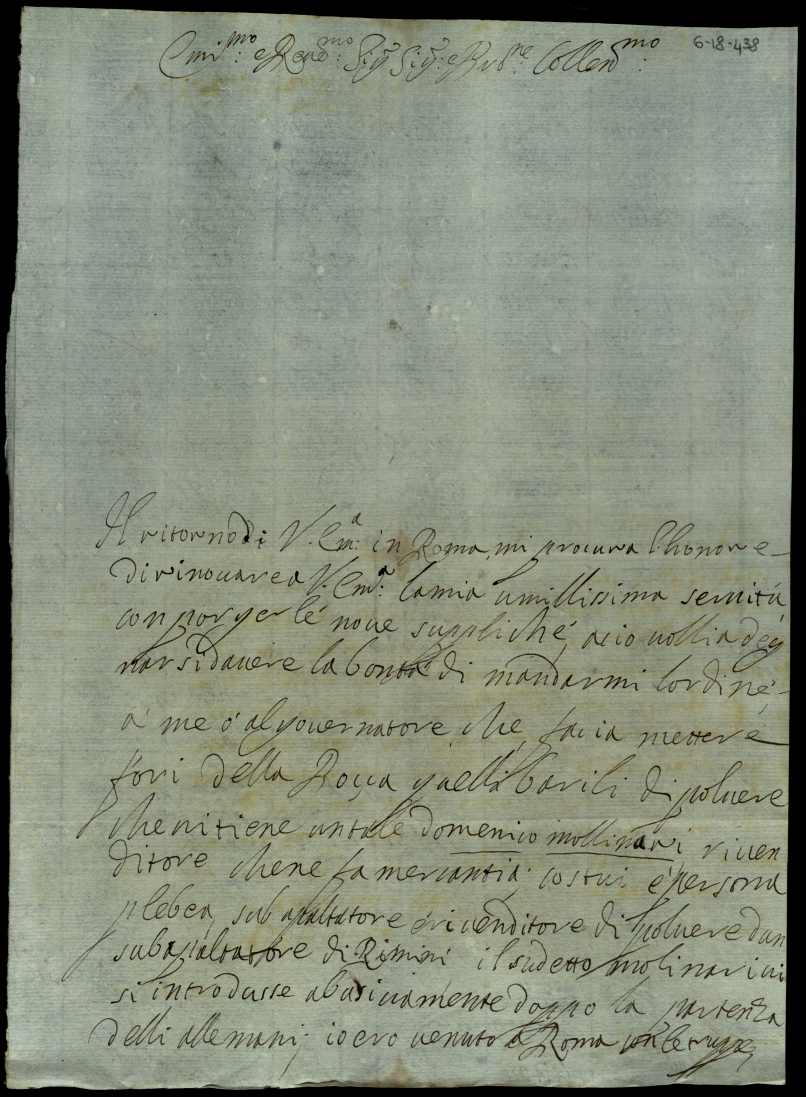 Em:mo e Reud:mo Sig:r Sig:r e Pad:ne Collend:mo
6-18-438
Il ritorno di V. Em:a in Roma, mi procura l'honore
di rinouare a V. Em:a la mia umillissima seruitú
con porgerle noue suppliche, acio uollia deg
narsi d'auere la bontá di mandarmi lordine,
a' me ó al gouernatore che facia mettere
fori della Rocca quelli barili di poluere
che ui tiene un tale domenico mollinari, riuen
ditore che ne fa mercantia, costui é persona
plebea, sub apaltatore é riuenditore di poluere d'un
subapaltatore di Rimini il sudetto molinari ui
si introdusse abusiuamente doppo la partenza
delli allemani; io ero uenuto a Roma con le truppe,